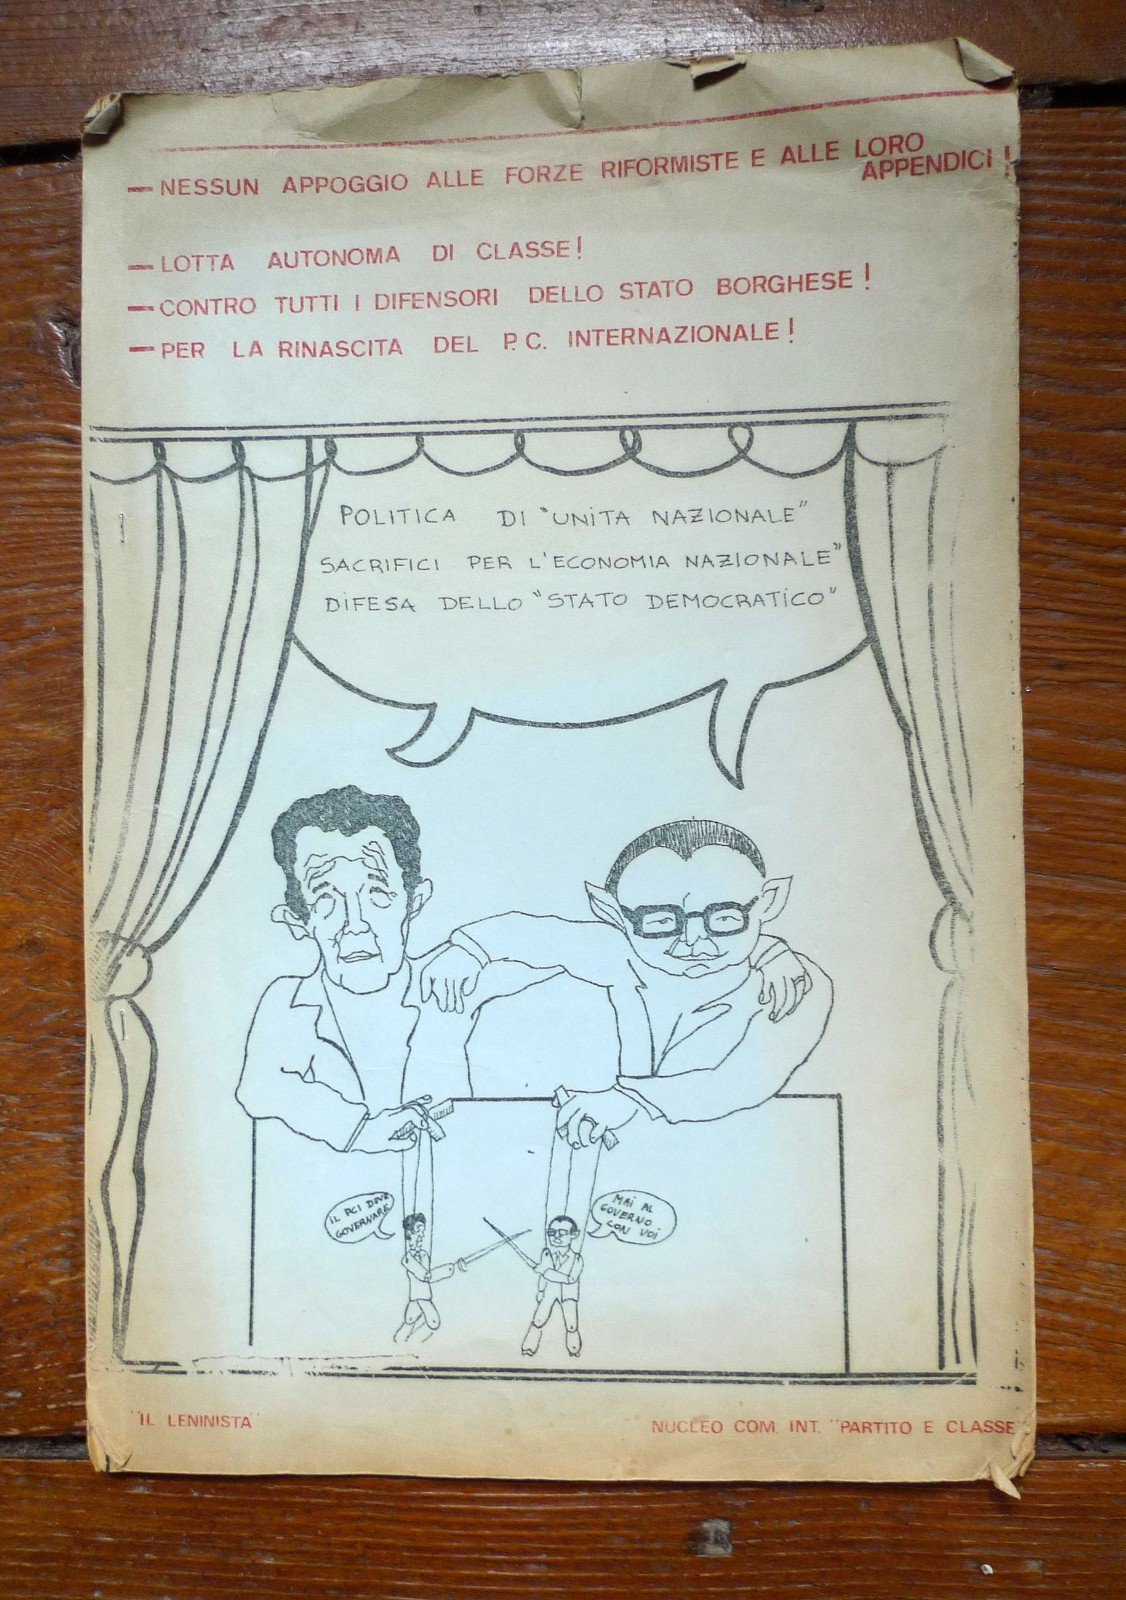 — NESSUN APPOGGIO ALLE FORZE RIFORMISTE E ALLE LORO
APPENDICI !
— LOTTA AUTONOMA DI CLASSE !
— CONTRO TUTTI I DIFENSORI DELLO STATO BORGHESE !
— PER LA RINASCITA DEL P.C. INTERNAZIONALE !
POLITICA DI "UNITA NAZIONALE"
SACRIFICI PER L'ECONOMIA NAZIONALE"
DIFESA DELLO "STATO DEMOCRATICO"
IL PCI DEVE
GOVERNARE
MAI AL
GOVERNO
CON VOI
"IL LENINISTA"
NUCLEO COM. INT. "PARTITO E CLASSE"